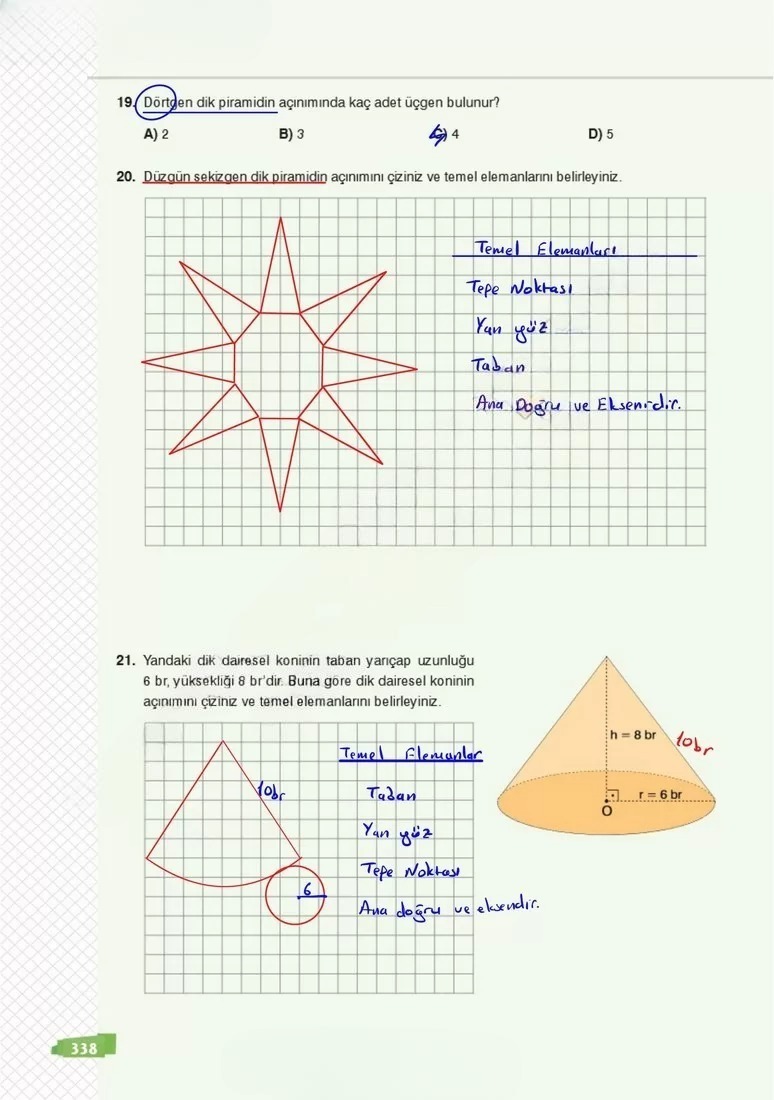 19. Dörtgen dik piramidin açınımında kaç adet üçgen bulunur?
A) 2 B) 3 C) 4 D) 5
20. Düzgün sekizgen dik piramidin açınımını çiziniz ve temel elemanlarını belirleyiniz.
Temel Elemanları
Tepe Noktası
Yan yüz
Taban
Ana Doğru ve Eksenidir.
21. Yandaki dik dairesel koninin taban yarıçap uzunluğu
6 br, yüksekliği 8 br'dir. Buna göre dik dairesel koninin
açınımını çiziniz ve temel elemanlarını belirleyiniz.
h = 8 br
10br
r = 6 br
O
Temel Elemanlar
10br
Taban
Yan yüz
Tepe Noktası
6
Ana doğru ve eksendir.
338